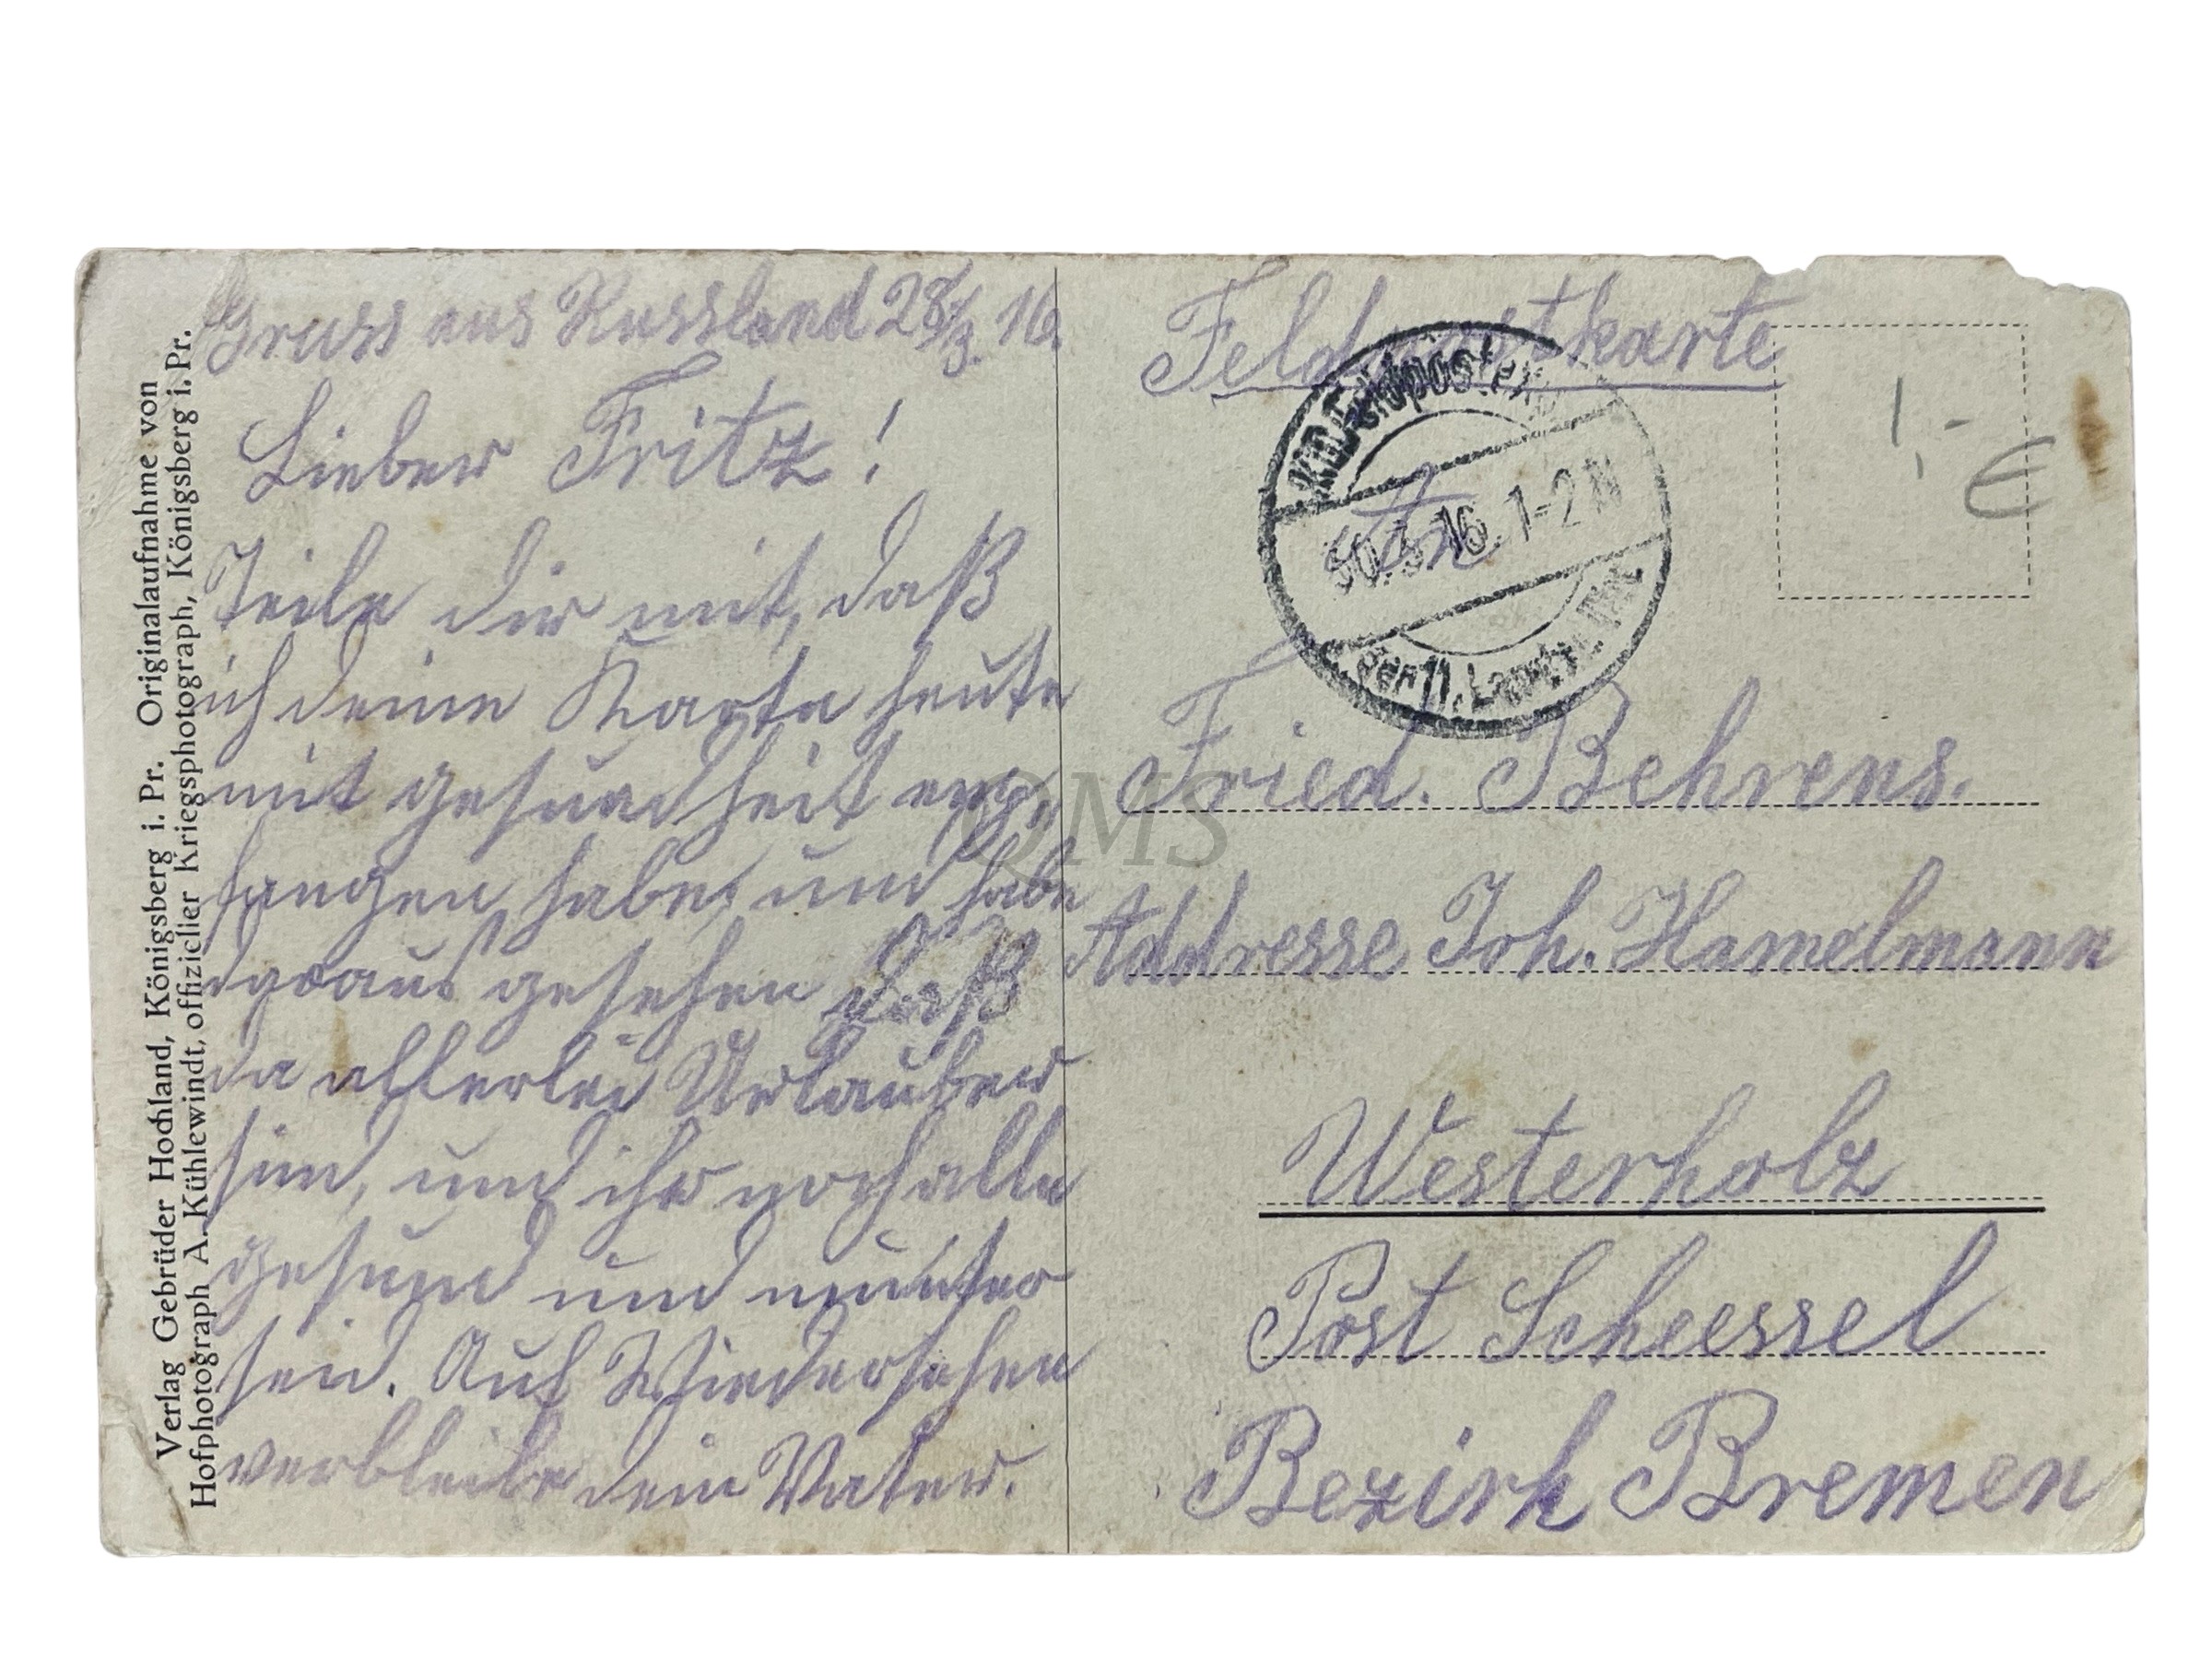 Verlag Gebrüder Hochland, Königsberg i. Pr. Originalaufnahme von
Hofphotograph A. Kühlewindt, offizieller Kriegsphotograph, Königsberg i. Pr.
Gruss aus Russland 28/3. 16.
Lieber Fritz!
Teile dir mit, daß
ich deine Karte heute
mit gesundheit emp,
fangen habe, und habe
daraus gesehen daß
da allerlei Urlauber
sind, und ihr noch alle
gesund und munter
seid. Auf Wiedersehen
verbleibe dein Vater.
Feldpostkarte
K.D. Feldpostexp.
30.3.16. 1-2 N
der 11. Landw. Div.
An
1,- €
Fried. Behrens.
Addresse Joh. Hamelmann
Westerholz
Post Scheessel
Bezirk Bremen
QMS